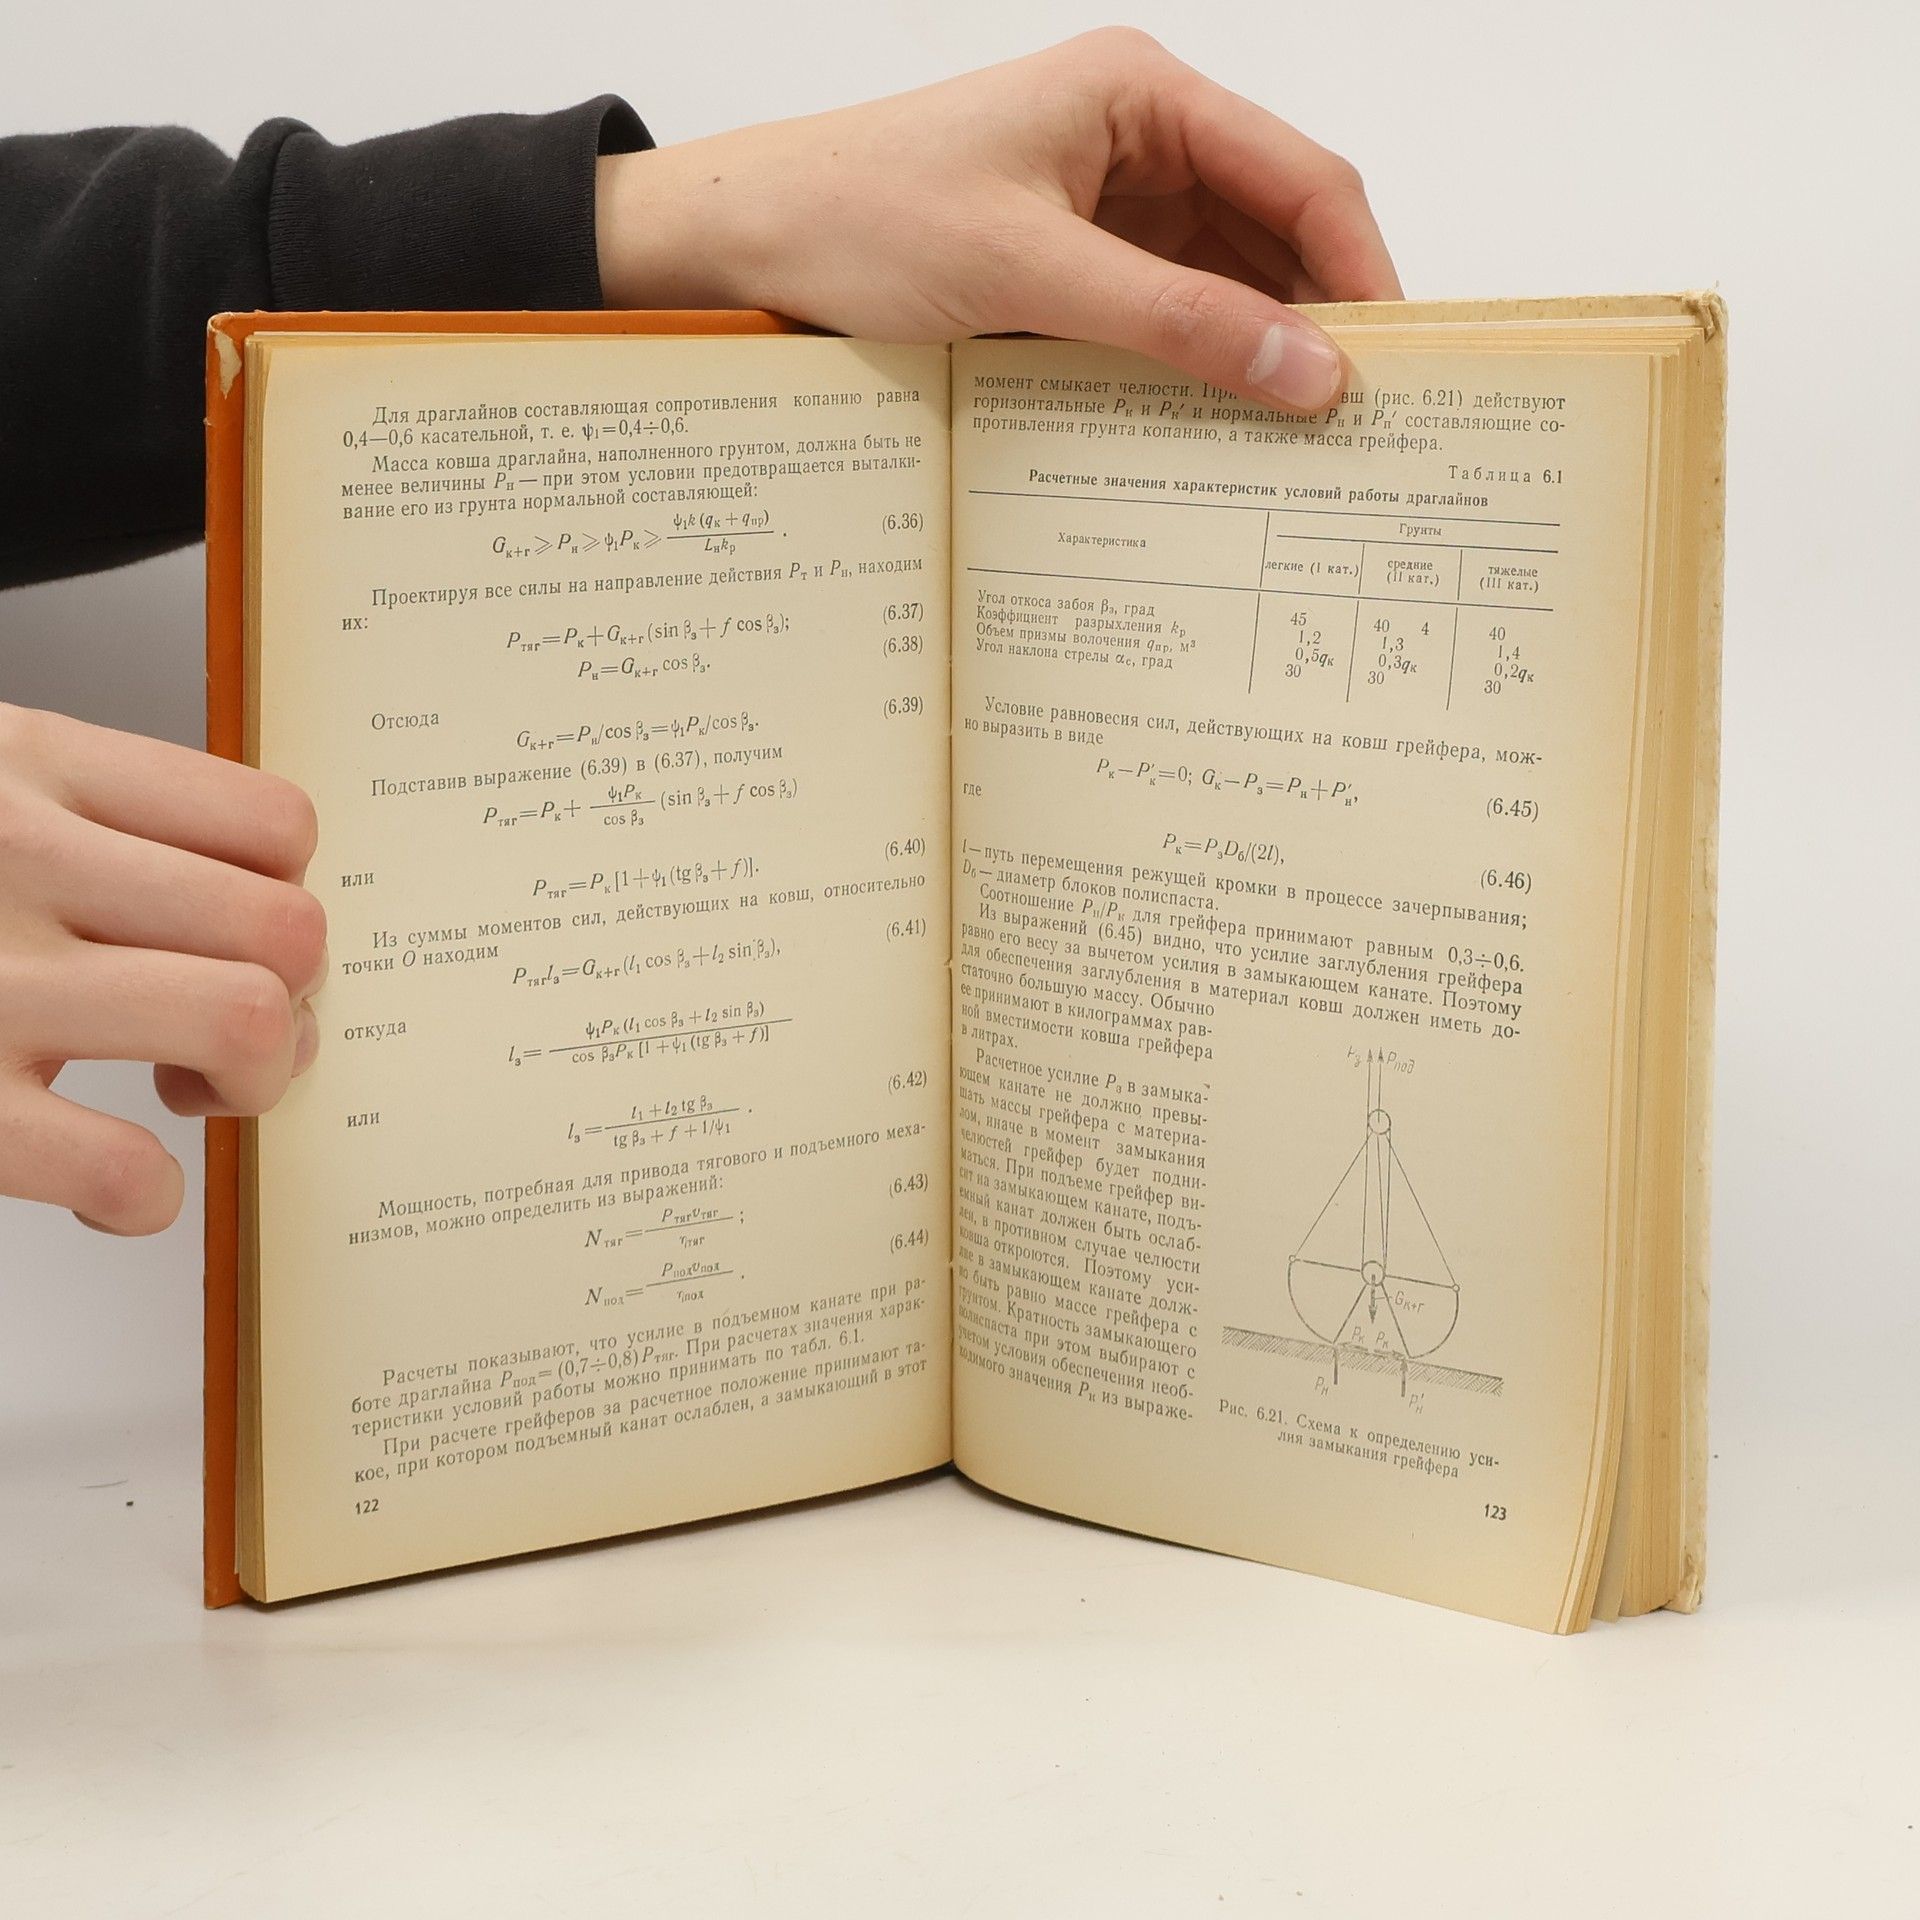 Для драглайнов составляющая сопротивления копанию равна
0,4—0,6 касательной, т. е. ψ₁=0,4÷0,6.
Масса ковша драглайна, наполненного грунтом, должна быть не
менее величины Pн — при этом условии предотвращается выталки-
вание его из грунта нормальной составляющей:
Gк+г ⩾ Pн ⩾ ψ₁Pк ⩾ ψ₁k (qк + qпр) / Lнkр . (6.36)
Проектируя все силы на направление действия Pт и Pн, находим
их:
Pтяг=Pк+Gк+г (sin βз+f cos βз); (6.37)
Pн=Gк+г cos βз. (6.38)
Отсюда
Gк+г=Pн/cos βз=ψ₁Pк/cos βз. (6.39)
Подставив выражение (6.39) в (6.37), получим
Pтяг=Pк+ ψ₁Pк / cos βз (sin βз+f cos βз)
или
Pтяг=Pк [1+ψ₁ (tg βз+f)]. (6.40)
Из суммы моментов сил, действующих на ковш, относительно
точки O находим
Pтягlз=Gк+г (l₁ cos βз+l₂ sin βз), (6.41)
откуда
lз= ψ₁Pк (l₁ cos βз + l₂ sin βз) / cos βзPк [1 + ψ₁ (tg βз + f)]
или
lз= l₁ + l₂ tg βз / tg βз + f + 1/ψ₁ . (6.42)
Мощность, потребная для привода тягового и подъемного меха-
низмов, можно определить из выражений:
Nтяг= Pтягvтяг / ηтяг ; (6.43)
Nпод= Pподvпод / ηпод . (6.44)
Расчеты показывают, что усилие в подъемном канате при ра-
боте драглайна Pпод= (0,7÷0,8) Pтяг. При расчетах значения харак-
теристики условий работы можно принимать по табл. 6.1.
При расчете грейферов за расчетное положение принимают та-
кое, при котором подъемный канат ослаблен, а замыкающий в этот
122
момент смыкает челюсти. (рис. 6.21) действуют
горизонтальные Pк и Pк′ и нормальные Pн и Pн′ составляющие со-
противления грунта копанию, а также масса грейфера.
Таблица 6.1
Расчетные значения характеристик условий работы драглайнов
Характеристика
Грунты
легкие (I кат.) средние (II кат.) тяжелые (III кат.)
Угол откоса забоя βз, град 45 40 4 40
Коэффициент разрыхления kр 1,2 1,3 1,4
Объем призмы волочения qпр, м³ 0,5qк 0,3qк 0,2qк
Угол наклона стрелы αс, град 30 30 30
Условие равновесия сил, действующих на ковш грейфера, мож-
но выразить в виде
Pк—Pк′=0; Gк—Pз=Pн+Pн′, (6.45)
где
Pк=PзDб/(2l), (6.46)
l — путь перемещения режущей кромки в процессе зачерпывания;
Dб — диаметр блоков полиспаста.
Соотношение Pн/Pк для грейфера принимают равным 0,3÷0,6.
Из выражений (6.45) видно, что усилие заглубления грейфера
равно его весу за вычетом усилия в замыкающем канате. Поэтому
для обеспечения заглубления в материал ковш должен иметь до-
статочно большую массу. Обычно
ее принимают в килограммах рав-
ной вместимости ковша грейфера
в литрах.
Расчетное усилие Pз в замыка-
ющем канате не должно превы-
шать массы грейфера с материа-
лом, иначе в момент замыкания
челюстей грейфер будет подни-
маться. При подъеме грейфер ви-
сит на замыкающем канате, подъ-
емный канат должен быть ослаб-
лен, в противном случае челюсти
ковша откроются. Поэтому уси-
лие в замыкающем канате долж-
но быть равно массе грейфера с
грунтом. Кратность замыкающего
полиспаста при этом выбирают с
учетом условия обеспечения необ-
ходимого значения Pк из выраже-
Pз Pпод
Gк+г
Pк Pк
Pн Pн′
Рис. 6.21. Схема к определению уси-
лия замыкания грейфера
123